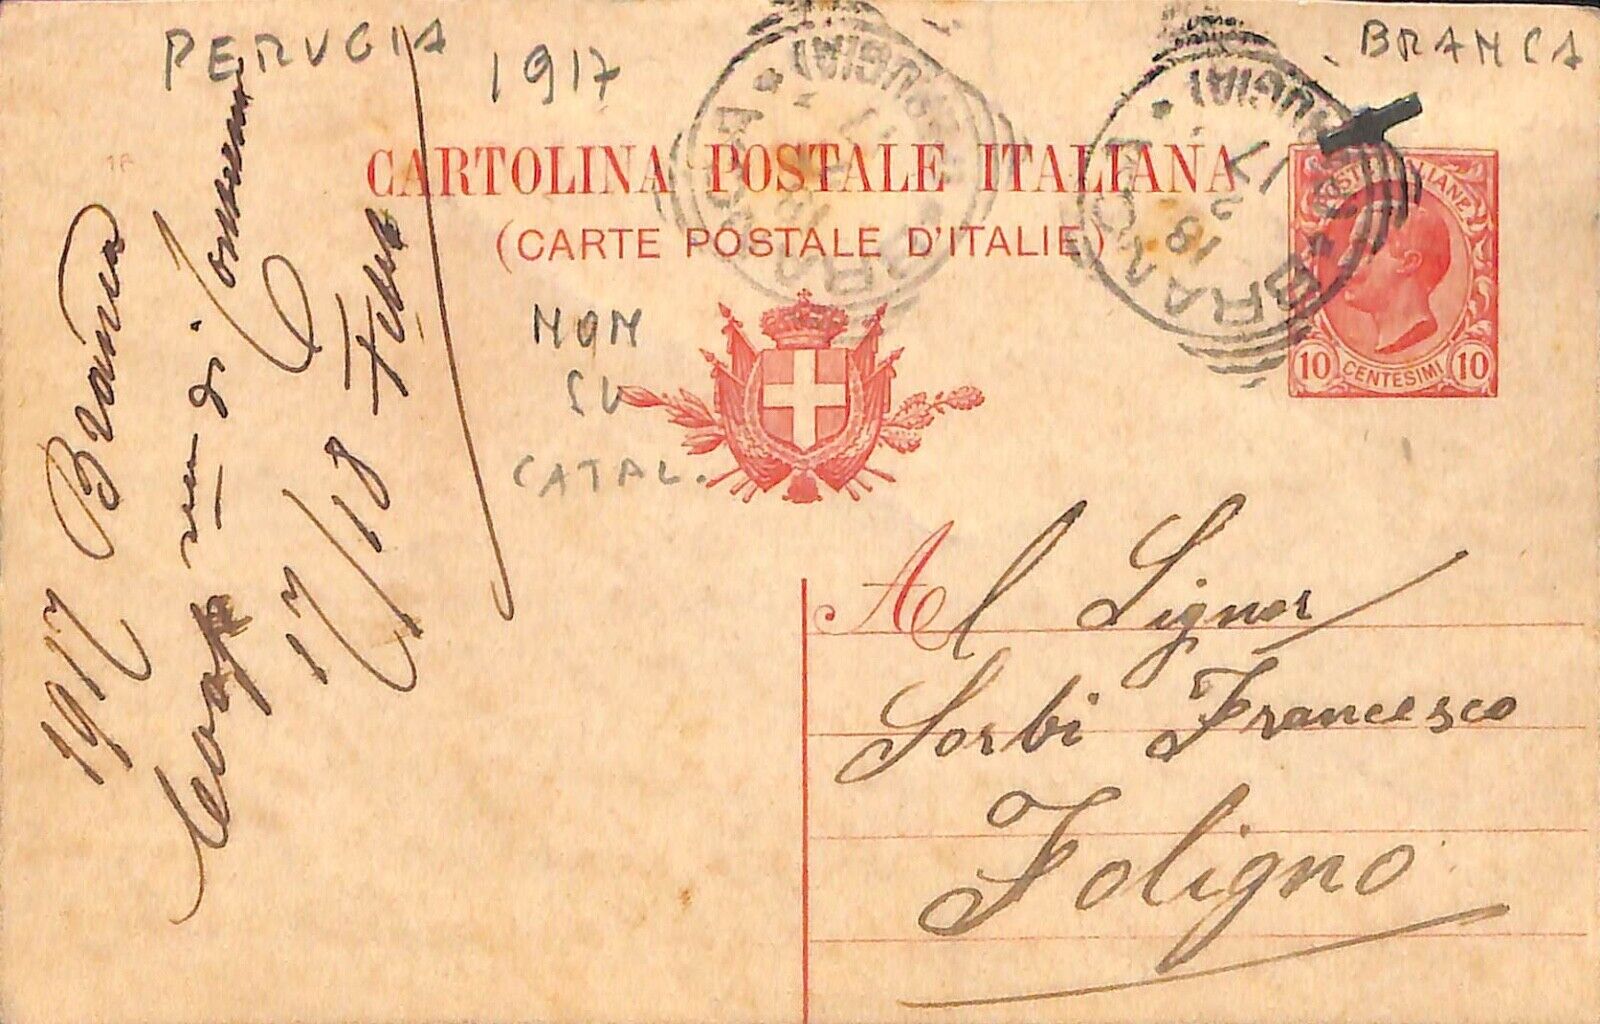 PERUGIA
1917
BRANCA
CARTOLINA POSTALE ITALIANA
(CARTE POSTALE D'ITALIE)
BRANCA * (PERUGIA) *
BRANCA * (PERUGIA) *
18 2 17
POSTE ITALIANE
10 CENTESIMI 10
NON
SU
CATAL.
1917 Branca
di
17/18 Febb
Al Signor
Sorbi Francesco
Foligno